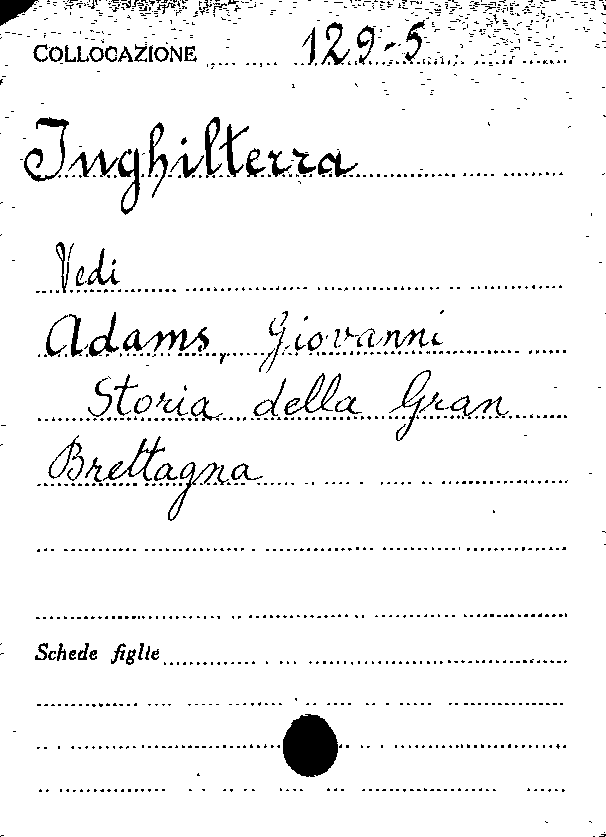 COLLOCAZIONE 129-5
Inghilterra
Vedi
Adams, Giovanni
Storia della Gran
Brettagna
Schede figlie